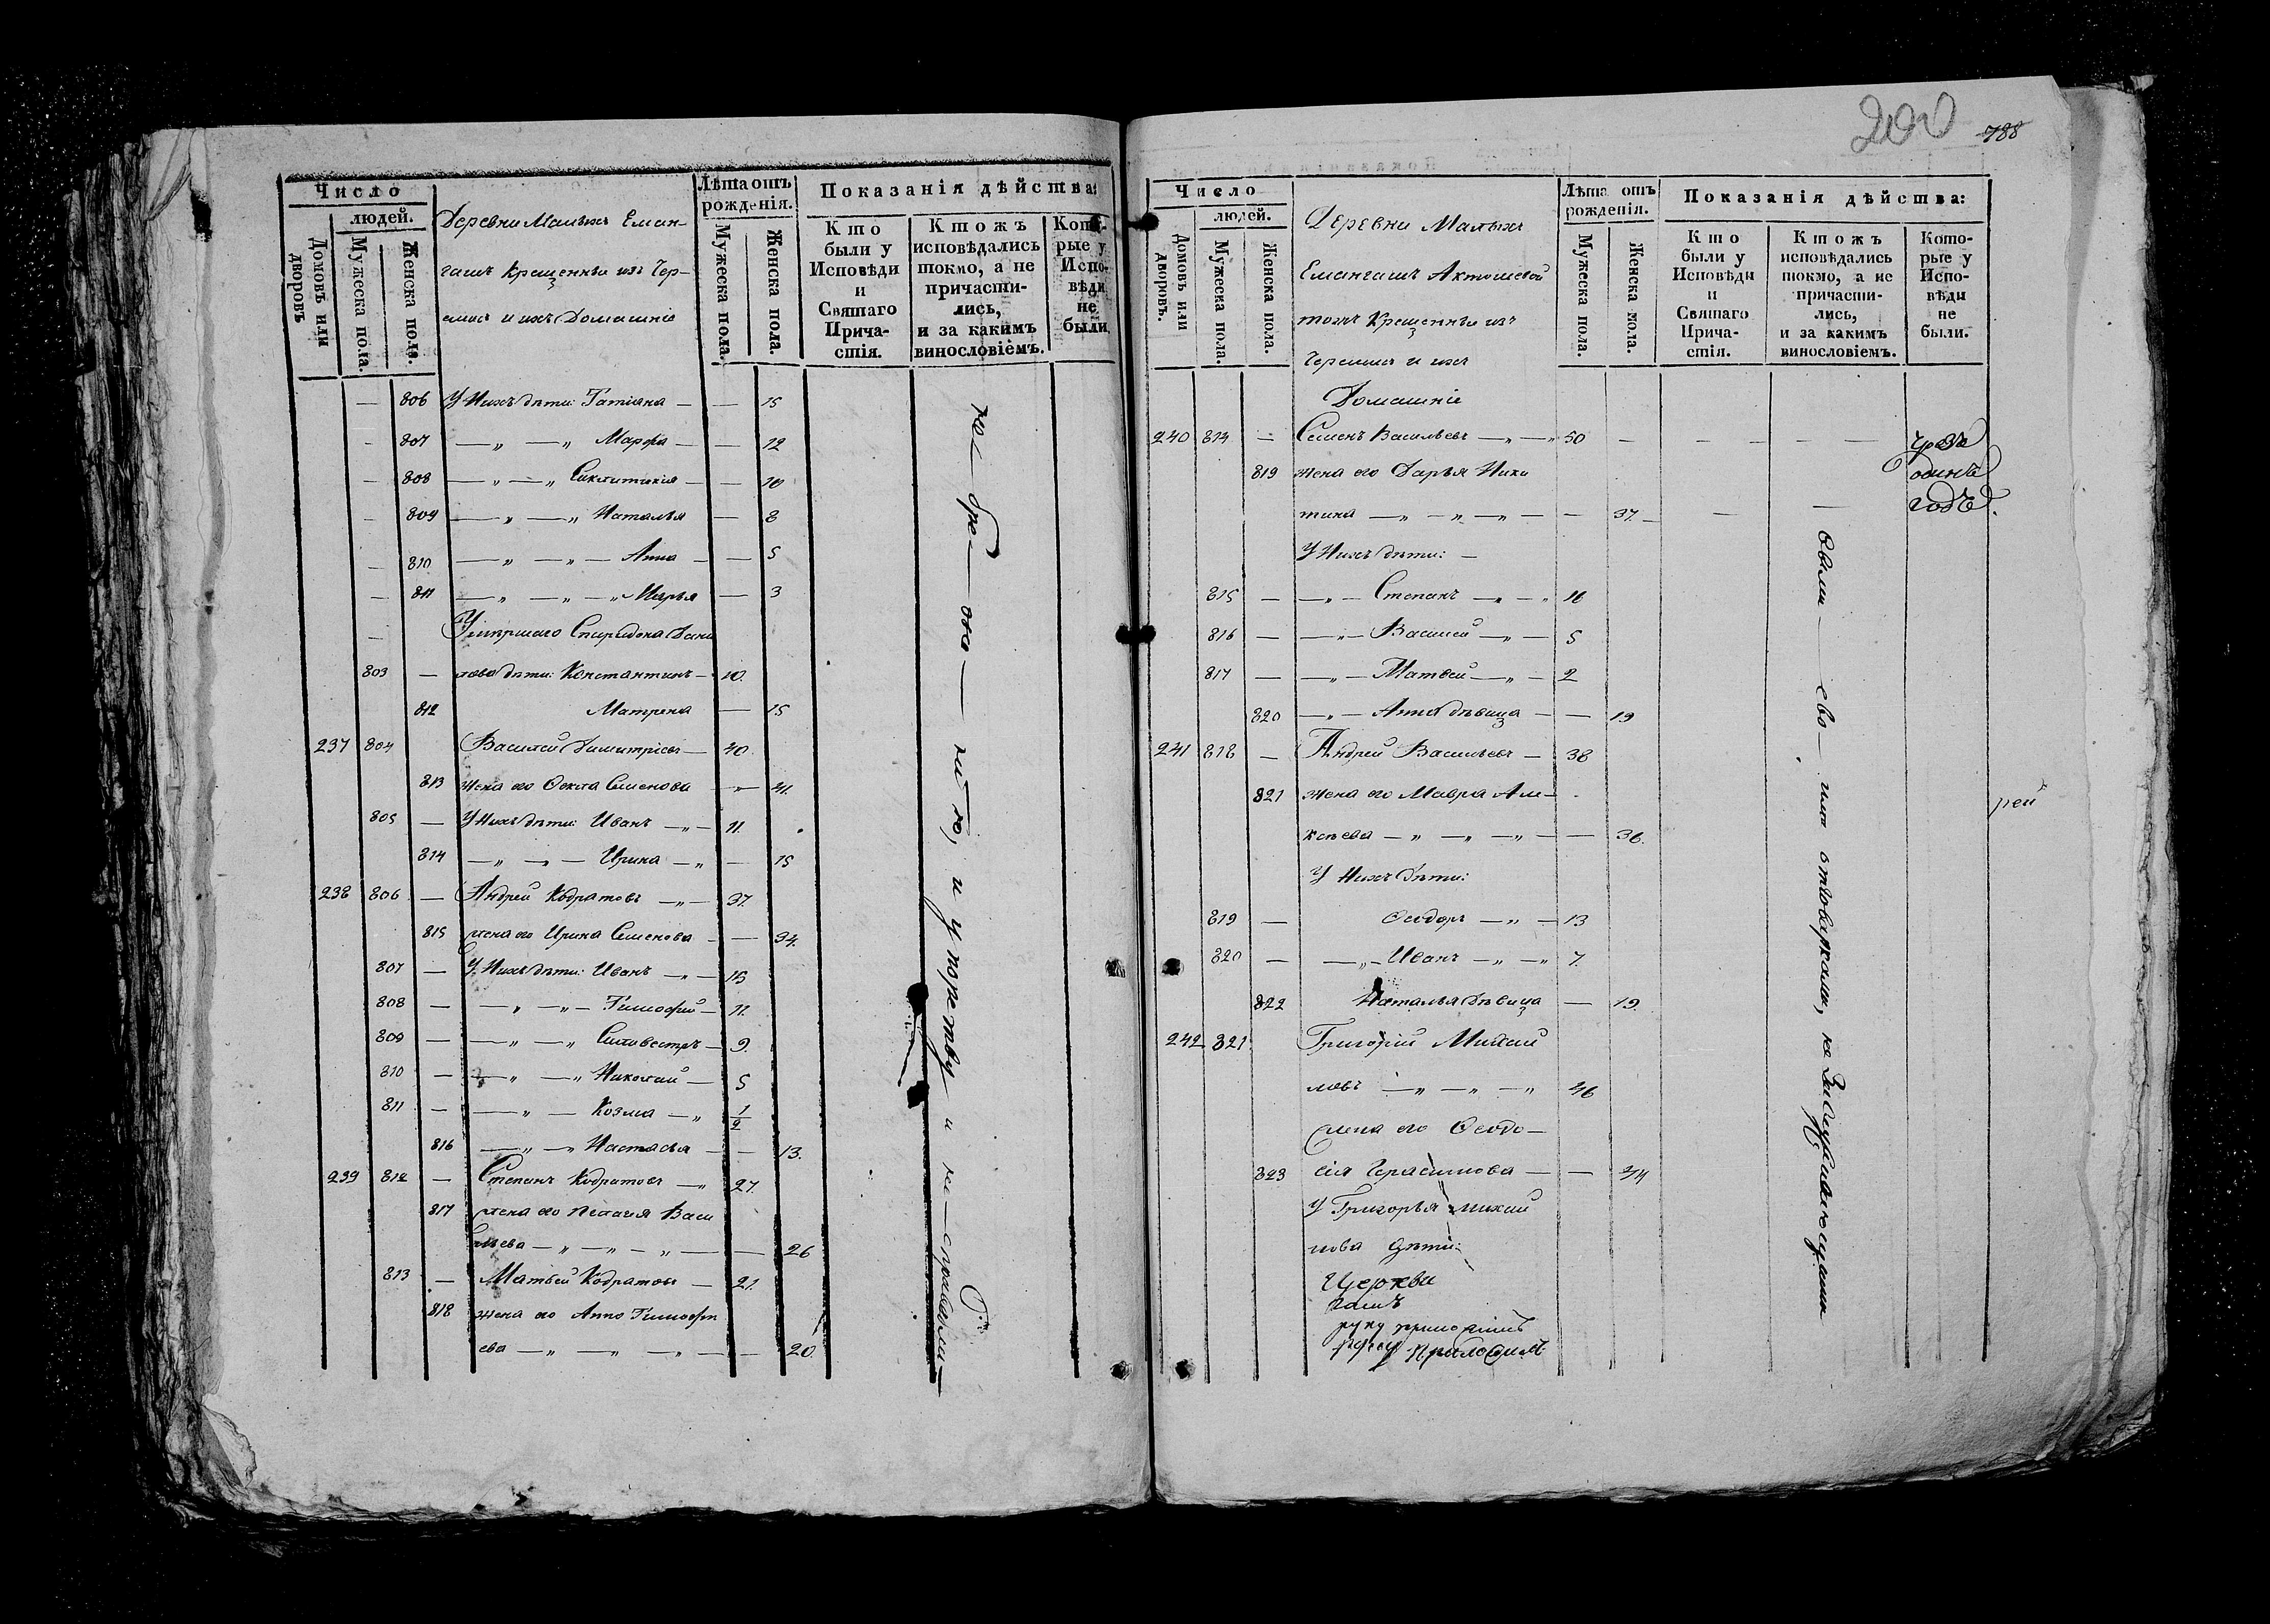 Число
людей.
Домовъ или дворовъ
Мужеска пола
Женска пола.
Деревни Малыхъ Еман-
гашъ Крещенные изъ Чер-
емисъ и ихъ Домашніе
Лѣта отъ рожденія.
Мужеска пола.
Женска пола.
Показанія дѣйства:
Кто были у Исповѣди и Святаго Прича-стія.
Ктожъ исповѣдались токмо, а не причасти-лись, и за какимъ винословіемъ.
Кото-рые у Испо-вѣди не были
— 806 У Нихъ дѣти: Татіяна — — 15
- 807 —„ —„ Марфа — — 12
- 808 —„ —„ Сиклитикия — — 10
- 809 —„ —„ Наталья — 8
- 810 —„ —„ — Анна — — 5
- 811 —„ —„ —„ Марья — 3
- Умершаго Спиридона Дани
803 — лова дѣти: Константинъ — 10.
812 Матрена — 15
237 804 Василей Димитріевъ — 40.
813 жена его Ѳекла Семенова —„— 41.
805 — У Нихъ дѣти: Иванъ —„— 11.
814 —„ —„ — Ирина —„ — 15
238 806 — Андрей Кодратовъ —„— 37.
815 жена его Ирина Семенова — — 34.
807 — У Нихъ дѣти: Иванъ —„— 15
808 — —„ —„— Тимофей — 11.
809 — —„ —„ Силовестръ — 9.
810 — —„ —„ Николай — 5
811 — —„ — Козма —„ 1/2
816 —„ —„ Настасья — — 13.
239 812 — Степанъ Кодратовъ —„ 27.
817 жена его Пелагия Васи
льева —„ —„ —„ — — 26
813 — Матвей Кодратовъ — 21.
818 жена его Анна Тимофе
ева —„ —„ —„ — — 20.
788
Число
людей.
Домовъ или дворовъ.
Мужеска пола.
Женска пола.
Деревни Малыхъ
Емангашъ Актошевой
тожъ Крещенные изъ
Черемисъ и ихъ
Домашніе
Лѣта отъ рожденія.
Мужеска пола.
Женска пола.
Показанія дѣйства:
Кто были у Исповѣди и Святаго Прича-стія.
Ктожъ исповѣдались токмо, а не причасти-лись, и за какимъ винословіемъ.
Кото-рые у Испо-вѣди не были.
240 814 — Семенъ Васильевъ —„ —„ 50 — — — — —
чрезъ
одинъ
годъ.
819 жена его Дарья Ники
тина —„ —„ —„ — — 37. — — —
У Нихъ дѣти: —
815 — —„— Степанъ —„ —„
816 — —„— Василей —„— 5
817 — —„— Матвей —„— 2
820 —„— Анна дѣвица — — 19
241 818 — Андрей Васильевъ — 38
821 жена его Мавра Але-
ксѣева —„ —„ —„ — — 36.
У Нихъ дѣти:
819 — Ѳеодоръ —„ — 13
820 — —„— Иванъ —„ —„ 7.
822 Наталья дѣвица — 19.
242 821. Григорій Михай
ловъ —„ —„ —„ 46
жена его Ѳеодо-
823 сія Герасимова — — 44
У Григорья Михай
лова дѣти:
Церкви
руку приложилъ
руку приложилъ
рей